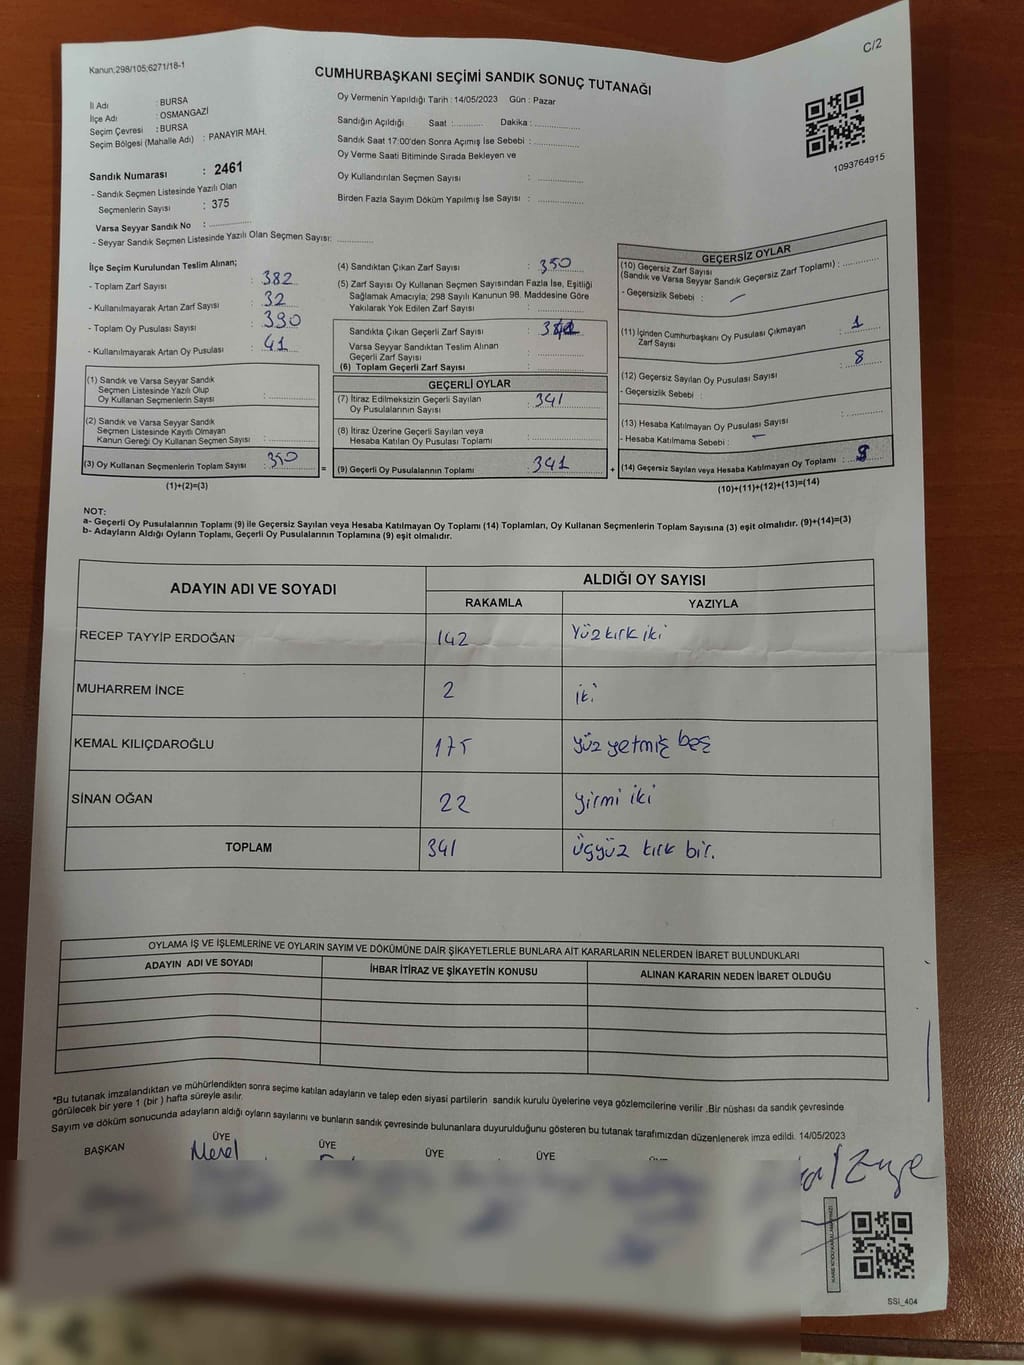 Kanun;298/105;6271/18-1
C/2
CUMHURBAŞKANI SEÇİMİ SANDIK SONUÇ TUTANAĞI
İl Adı : BURSA
İlçe Adı : OSMANGAZİ
Seçim Çevresi : BURSA
Seçim Bölgesi (Mahalle Adı) : PANAYIR MAH.
Oy Vermenin Yapıldığı Tarih : 14/05/2023 Gün : Pazar
Sandığın Açıldığı Saat :............ Dakika :................
Sandık Saat 17:00'den Sonra Açımış İse Sebebi :................
Oy Verme Saati Bitiminde Sırada Bekleyen ve
Oy Kullandırılan Seçmen Sayısı :................
Birden Fazla Sayım Döküm Yapılmış İse Sayısı :................
1093764915
Sandık Numarası : 2461
- Sandık Seçmen Listesinde Yazılı Olan
Seçmenlerin Sayısı : 375
Varsa Seyyar Sandık No :................
- Seyyar Sandık Seçmen Listesinde Yazılı Olan Seçmen Sayısı:............
İlçe Seçim Kurulundan Teslim Alınan;
- Toplam Zarf Sayısı : 382
- Kullanılmayarak Artan Zarf Sayısı : 32
- Toplam Oy Pusulası Sayısı : 390
- Kullanılmayarak Artan Oy Pusulası : 41
(1) Sandık ve Varsa Seyyar Sandık
Seçmen Listesinde Yazılı Olup
Oy Kullanan Seçmenlerin Sayısı :............
(2) Sandık ve Varsa Seyyar Sandık
Seçmen Listesinde Kayıtlı Olmayan
Kanun Gereği Oy Kullanan Seçmen Sayısı :............
(3) Oy Kullanan Seçmenlerin Toplam Sayısı : 350
(1)+(2)=(3)
(4) Sandıktan Çıkan Zarf Sayısı : 350
(5) Zarf Sayısı Oy Kullanan Seçmen Sayısından Fazla İse, Eşitliği
Sağlamak Amacıyla; 298 Sayılı Kanunun 98. Maddesine Göre
Yakılarak Yok Edilen Zarf Sayısı :............
Sandıkta Çıkan Geçerli Zarf Sayısı :
Varsa Seyyar Sandıktan Teslim Alınan
Geçerli Zarf Sayısı :............
(6) Toplam Geçerli Zarf Sayısı :............
GEÇERLİ OYLAR
(7) İtiraz Edilmeksizin Geçerli Sayılan
Oy Pusulalarının Sayısı : 341
(8) İtiraz Üzerine Geçerli Sayılan veya
Hesaba Katılan Oy Pusulası Toplamı :............
= (9) Geçerli Oy Pusulalarının Toplamı : 341 +
GEÇERSİZ OYLAR
(10) Geçersiz Zarf Sayısı
(Sandık ve Varsa Seyyar Sandık Geçersiz Zarf Toplamı) :............
- Geçersizlik Sebebi : —
(11) İçinden Cumhurbaşkanı Oy Pusulası Çıkmayan
Zarf Sayısı : 1
(12) Geçersiz Sayılan Oy Pusulası Sayısı : 8
- Geçersizlik Sebebi :
(13) Hesaba Katılmayan Oy Pusulası Sayısı :............
- Hesaba Katılmama Sebebi : —
(14) Geçersiz Sayılan veya Hesaba Katılmayan Oy Toplamı : 9
(10)+(11)+(12)+(13)=(14)
NOT:
a- Geçerli Oy Pusulalarının Toplamı (9) ile Geçersiz Sayılan veya Hesaba Katılmayan Oy Toplamı (14) Toplamları, Oy Kullanan Seçmenlerin Toplam Sayısına (3) eşit olmalıdır. (9)+(14)=(3)
b- Adayların Aldığı Oyların Toplamı, Geçerli Oy Pusulalarının Toplamına (9) eşit olmalıdır.
ADAYIN ADI VE SOYADI ALDIĞI OY SAYISI
RAKAMLA YAZIYLA
RECEP TAYYİP ERDOĞAN 142 Yüz kırk iki
MUHARREM İNCE 2 iki
KEMAL KILIÇDAROĞLU 175 yüz yetmiş beş
SİNAN OĞAN 22 yirmi iki
TOPLAM 341 üçyüz kırk bir.
OYLAMA İŞ VE İŞLEMLERİNE VE OYLARIN SAYIM VE DÖKÜMÜNE DAİR ŞİKAYETLERLE BUNLARA AİT KARARLARIN NELERDEN İBARET BULUNDUKLARI
ADAYIN ADI VE SOYADI İHBAR İTİRAZ VE ŞİKAYETİN KONUSU ALINAN KARARIN NEDEN İBARET OLDUĞU
*Bu tutanak imzalandıktan ve mühürlendikten sonra seçime katılan adayların ve talep eden siyasi partilerin sandık kurulu üyelerine veya gözlemcilerine verilir .Bir nüshası da sandık çevresinde
görülecek bir yere 1 (bir ) hafta süreyle asılır.
Sayım ve döküm sonucunda adayların aldığı oyların sayılarını ve bunların sandık çevresinde bulunanlara duyurulduğunu gösteren bu tutanak tarafımızdan düzenlenerek imza edildi. 14/05/2023
BAŞKAN ÜYE ÜYE ÜYE ÜYE
SSI_404